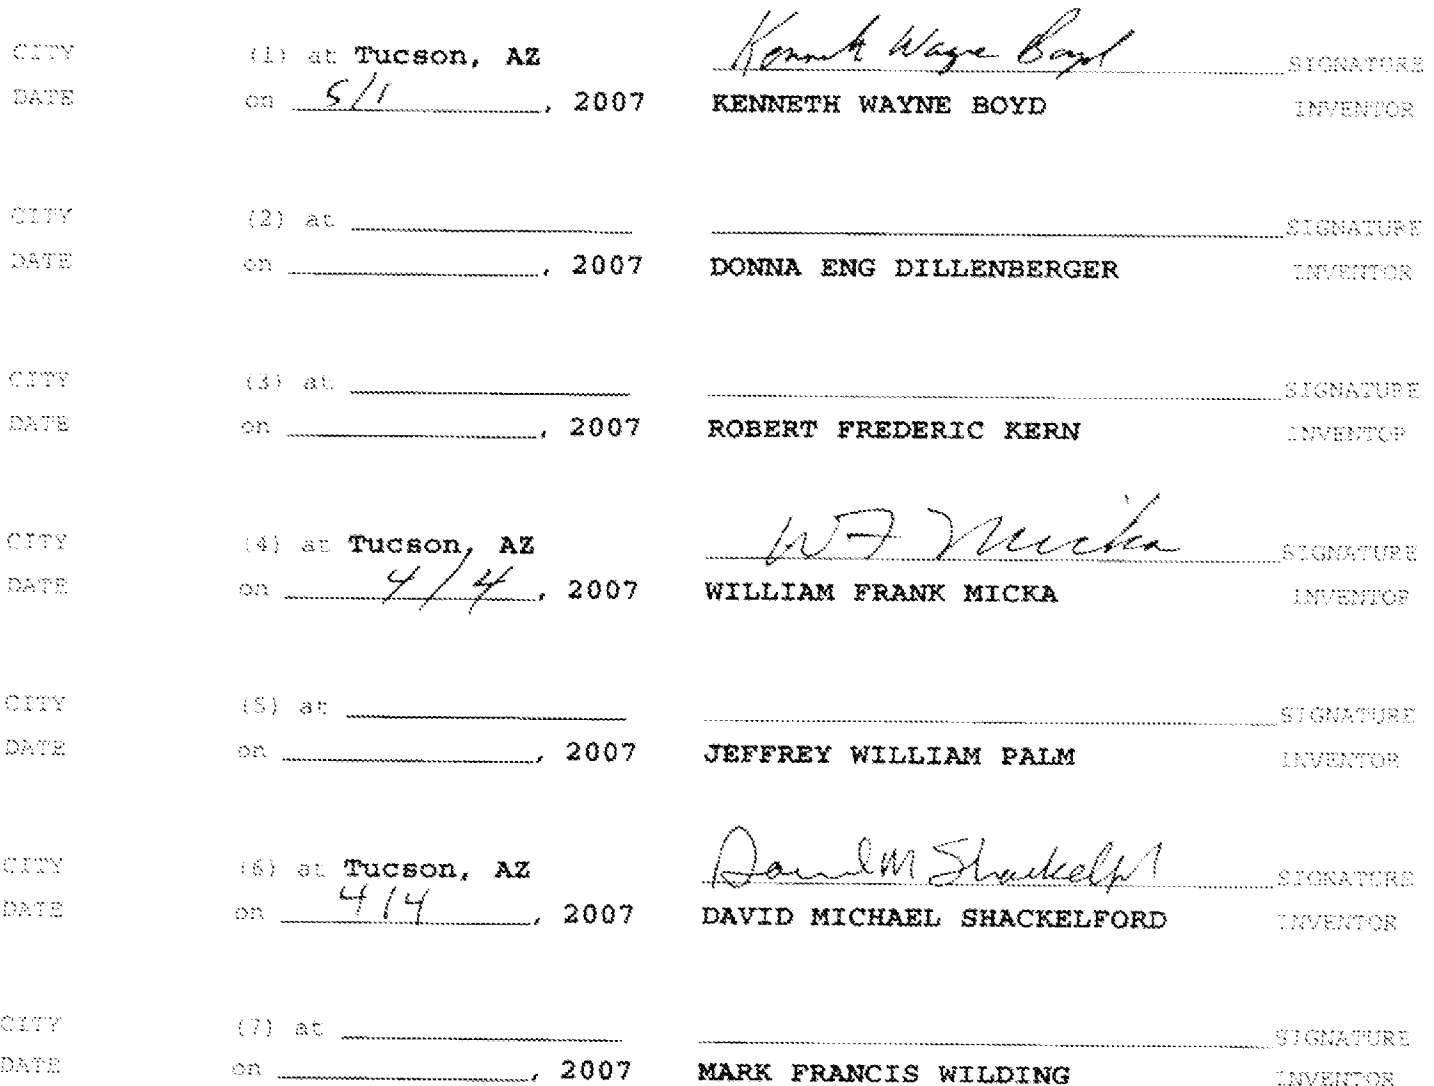 CITY (1) at Tucson, AZ Kenneth Wayne Boyd SIGNATURE
DATE on 5/1, 2007 KENNETH WAYNE BOYD INVENTOR
CITY (2) at SIGNATURE
DATE on , 2007 DONNA ENG DILLENBERGER INVENTOR
CITY (3) at SIGNATURE
DATE on , 2007 ROBERT FREDERIC KERN INVENTOR
CITY (4) at Tucson, AZ WF Micka SIGNATURE
DATE on 4/4, 2007 WILLIAM FRANK MICKA INVENTOR
CITY (5) at SIGNATURE
DATE on , 2007 JEFFREY WILLIAM PALM INVENTOR
CITY (6) at Tucson, AZ David M Shackelford SIGNATURE
DATE on 4/4, 2007 DAVID MICHAEL SHACKELFORD INVENTOR
CITY (7) at SIGNATURE
DATE on , 2007 MARK FRANCIS WILDING INVENTOR